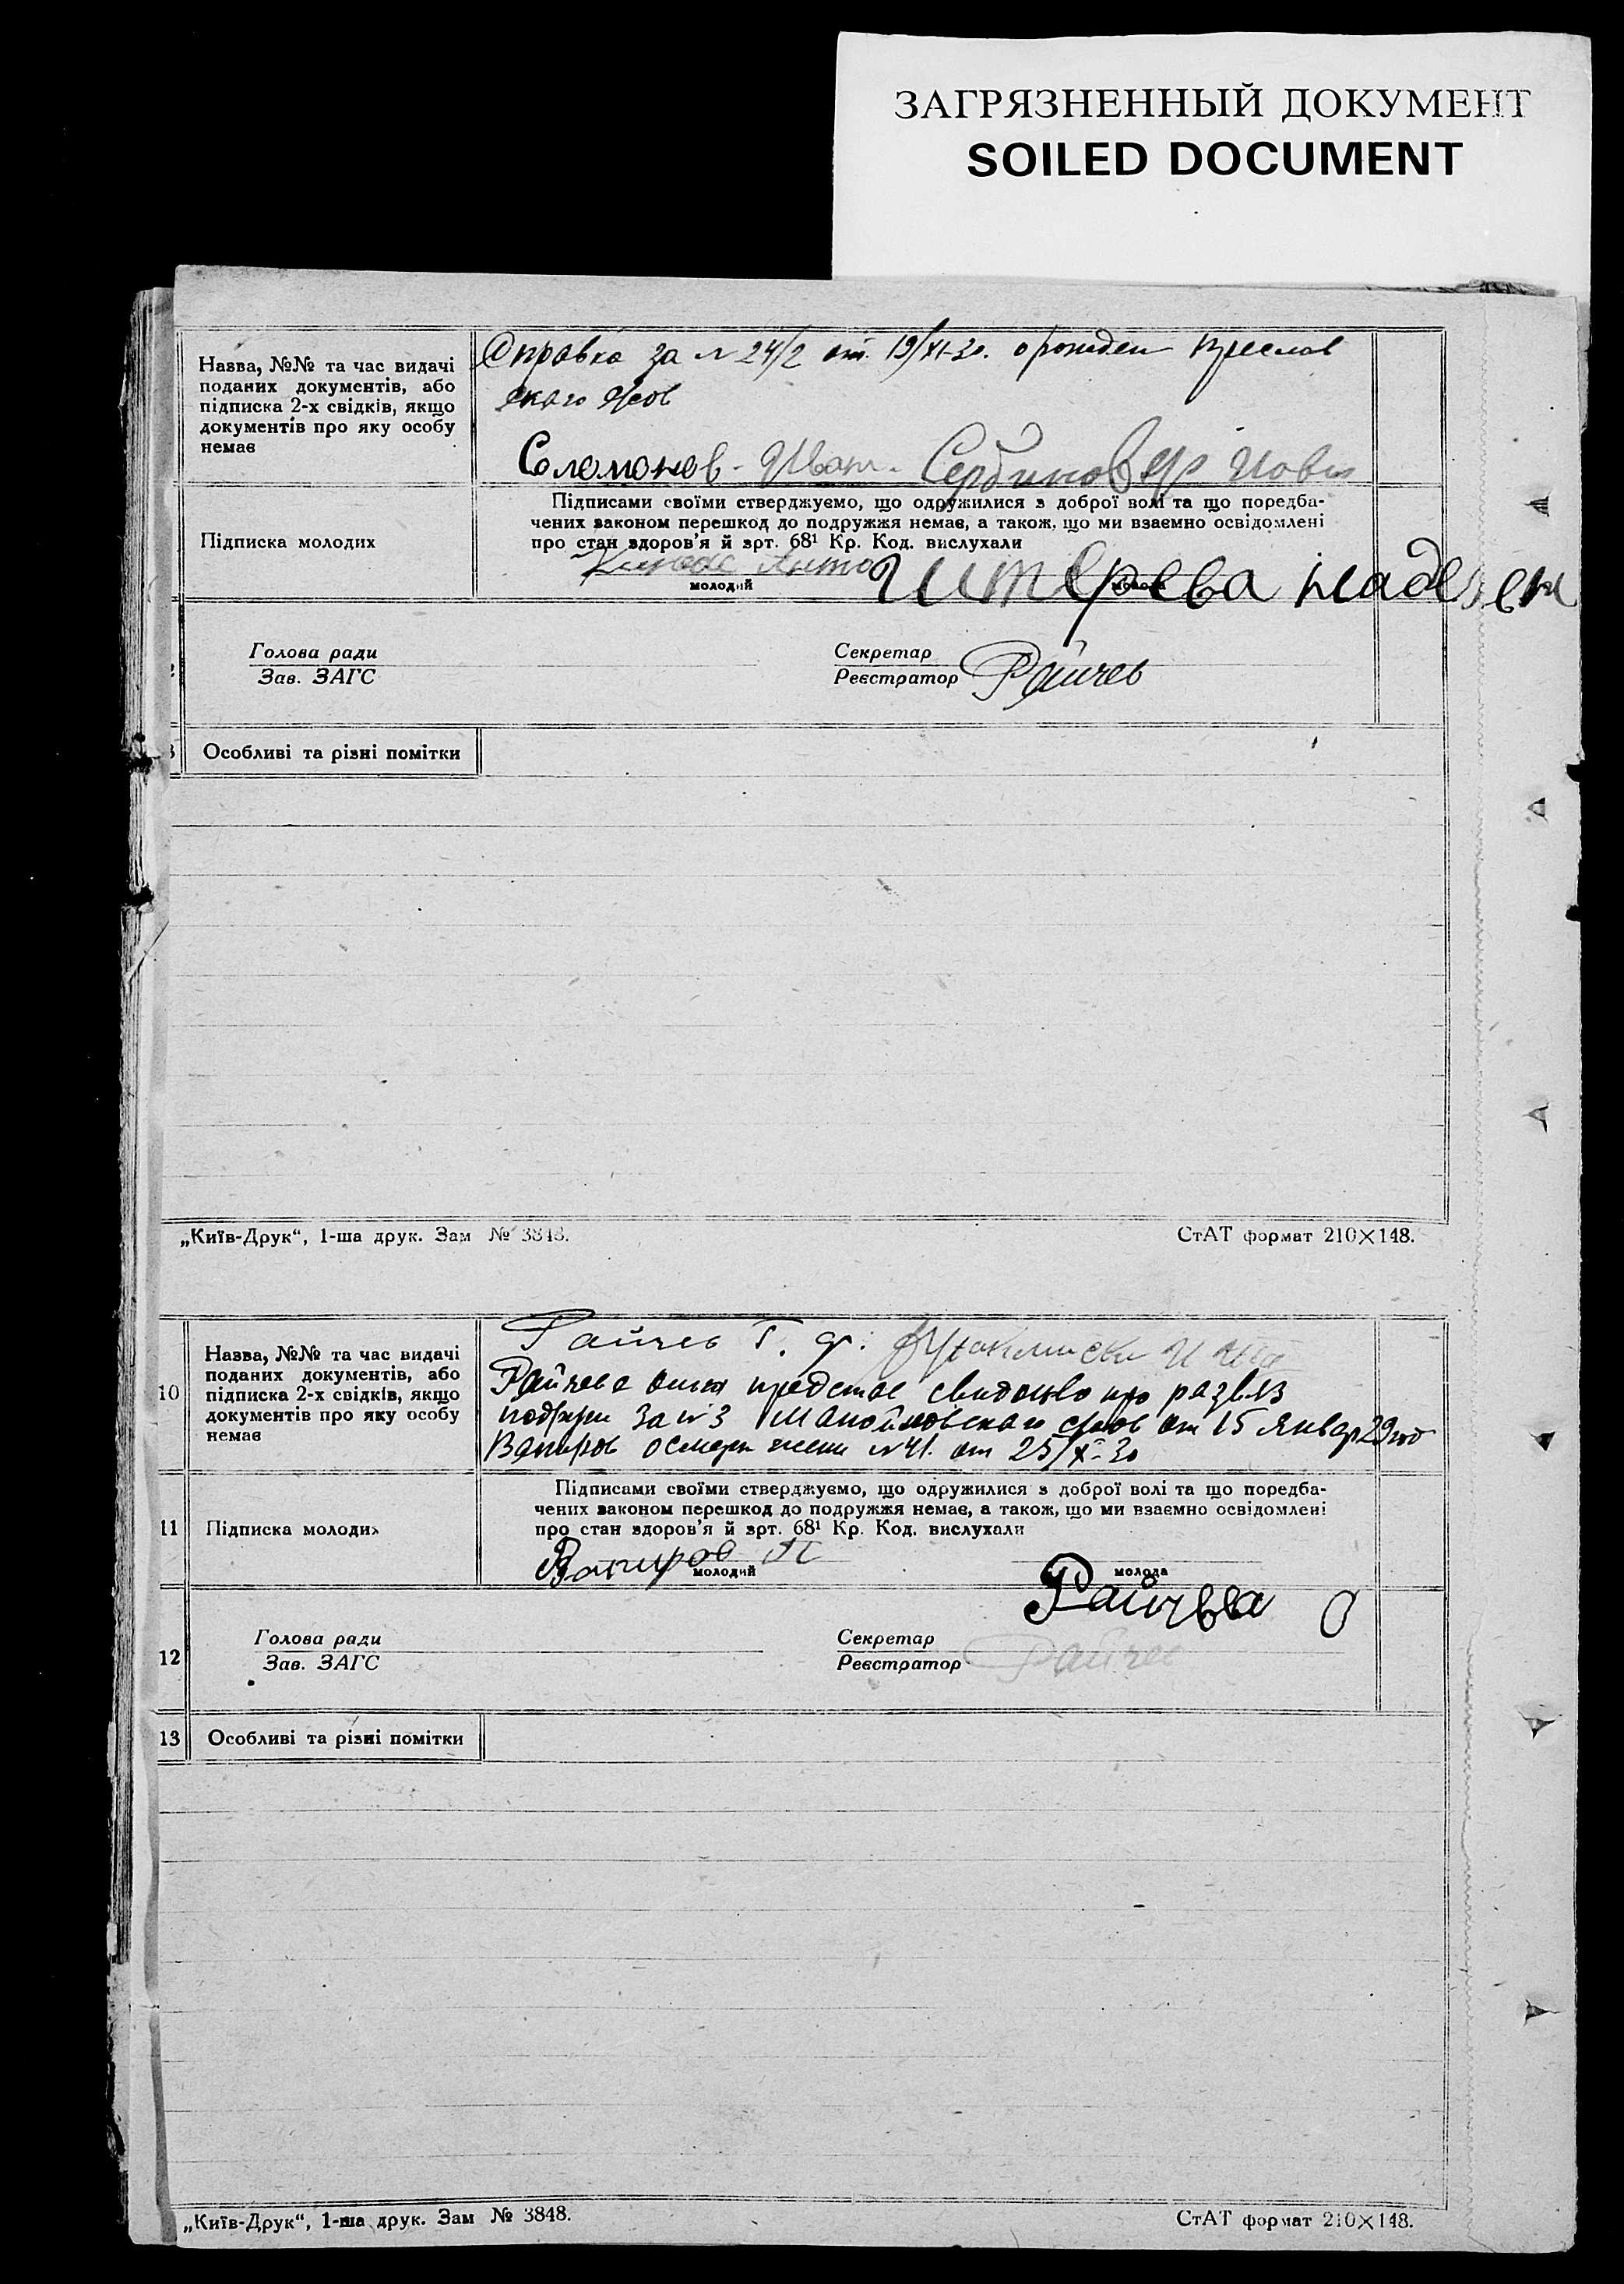 ЗАГРЯЗНЕННЫЙ ДОКУМЕНТ
SOILED DOCUMENT
Назва, №№ та час видачі
поданих документів, або
підписка 2-х свідків, якщо
документів про яку особу
немає
Справка за № 24/2 от 19/XI-30. о рожден
Соломонов - Иван.
Підписка молодих
Підписами своїми стверджуємо, що одружилися з доброї волі та що поредба-
чених законом перешкод до подружжя немає, а також, що ми взаємно освідомлені
про стан здоров'я й зрт. 68¹ Кр. Код. вислухали
молодий
молода
Голова ради
Зав. ЗАГС
Секретар
Реєстратор
Райчев
Особливі та різні помітки
„Київ-Друк“, 1-ша друк. Зам № 3848.
СтАТ формат 210×148.
10
Назва, №№ та час видачі
поданих документів, або
підписка 2-х свідків, якщо
документів про яку особу
немає
Райчев Г. Ф.
Райчева
за №3 от 15 Январ 29 год
Вапиров о смерт жени №41. от 25/X-30
11
Підписка молодих
Підписами своїми стверджуємо, що одружилися з доброї волі та що поредба-
чених законом перешкод до подружжя немає, а також, що ми взаємно освідомлені
про стан здоров'я й зрт. 68¹ Кр. Код. вислухали
Вапиров П
молодий
молода
Райчева О
12
Голова ради
Зав. ЗАГС
Секретар
Реєстратор
Райчев
13
Особливі та різні помітки
„Київ-Друк“, 1-ша друк. Зам № 3848.
СтАТ формат 210×148.